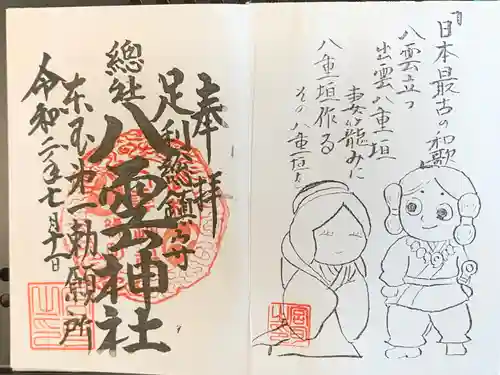 奉拝
足利総鎮守
總社
八雲神社
東国第一勅願所
令和二年七月十一日
日本最古の和歌
八雲立つ
出雲八重垣
妻籠みに
八重垣作る
その八重垣を